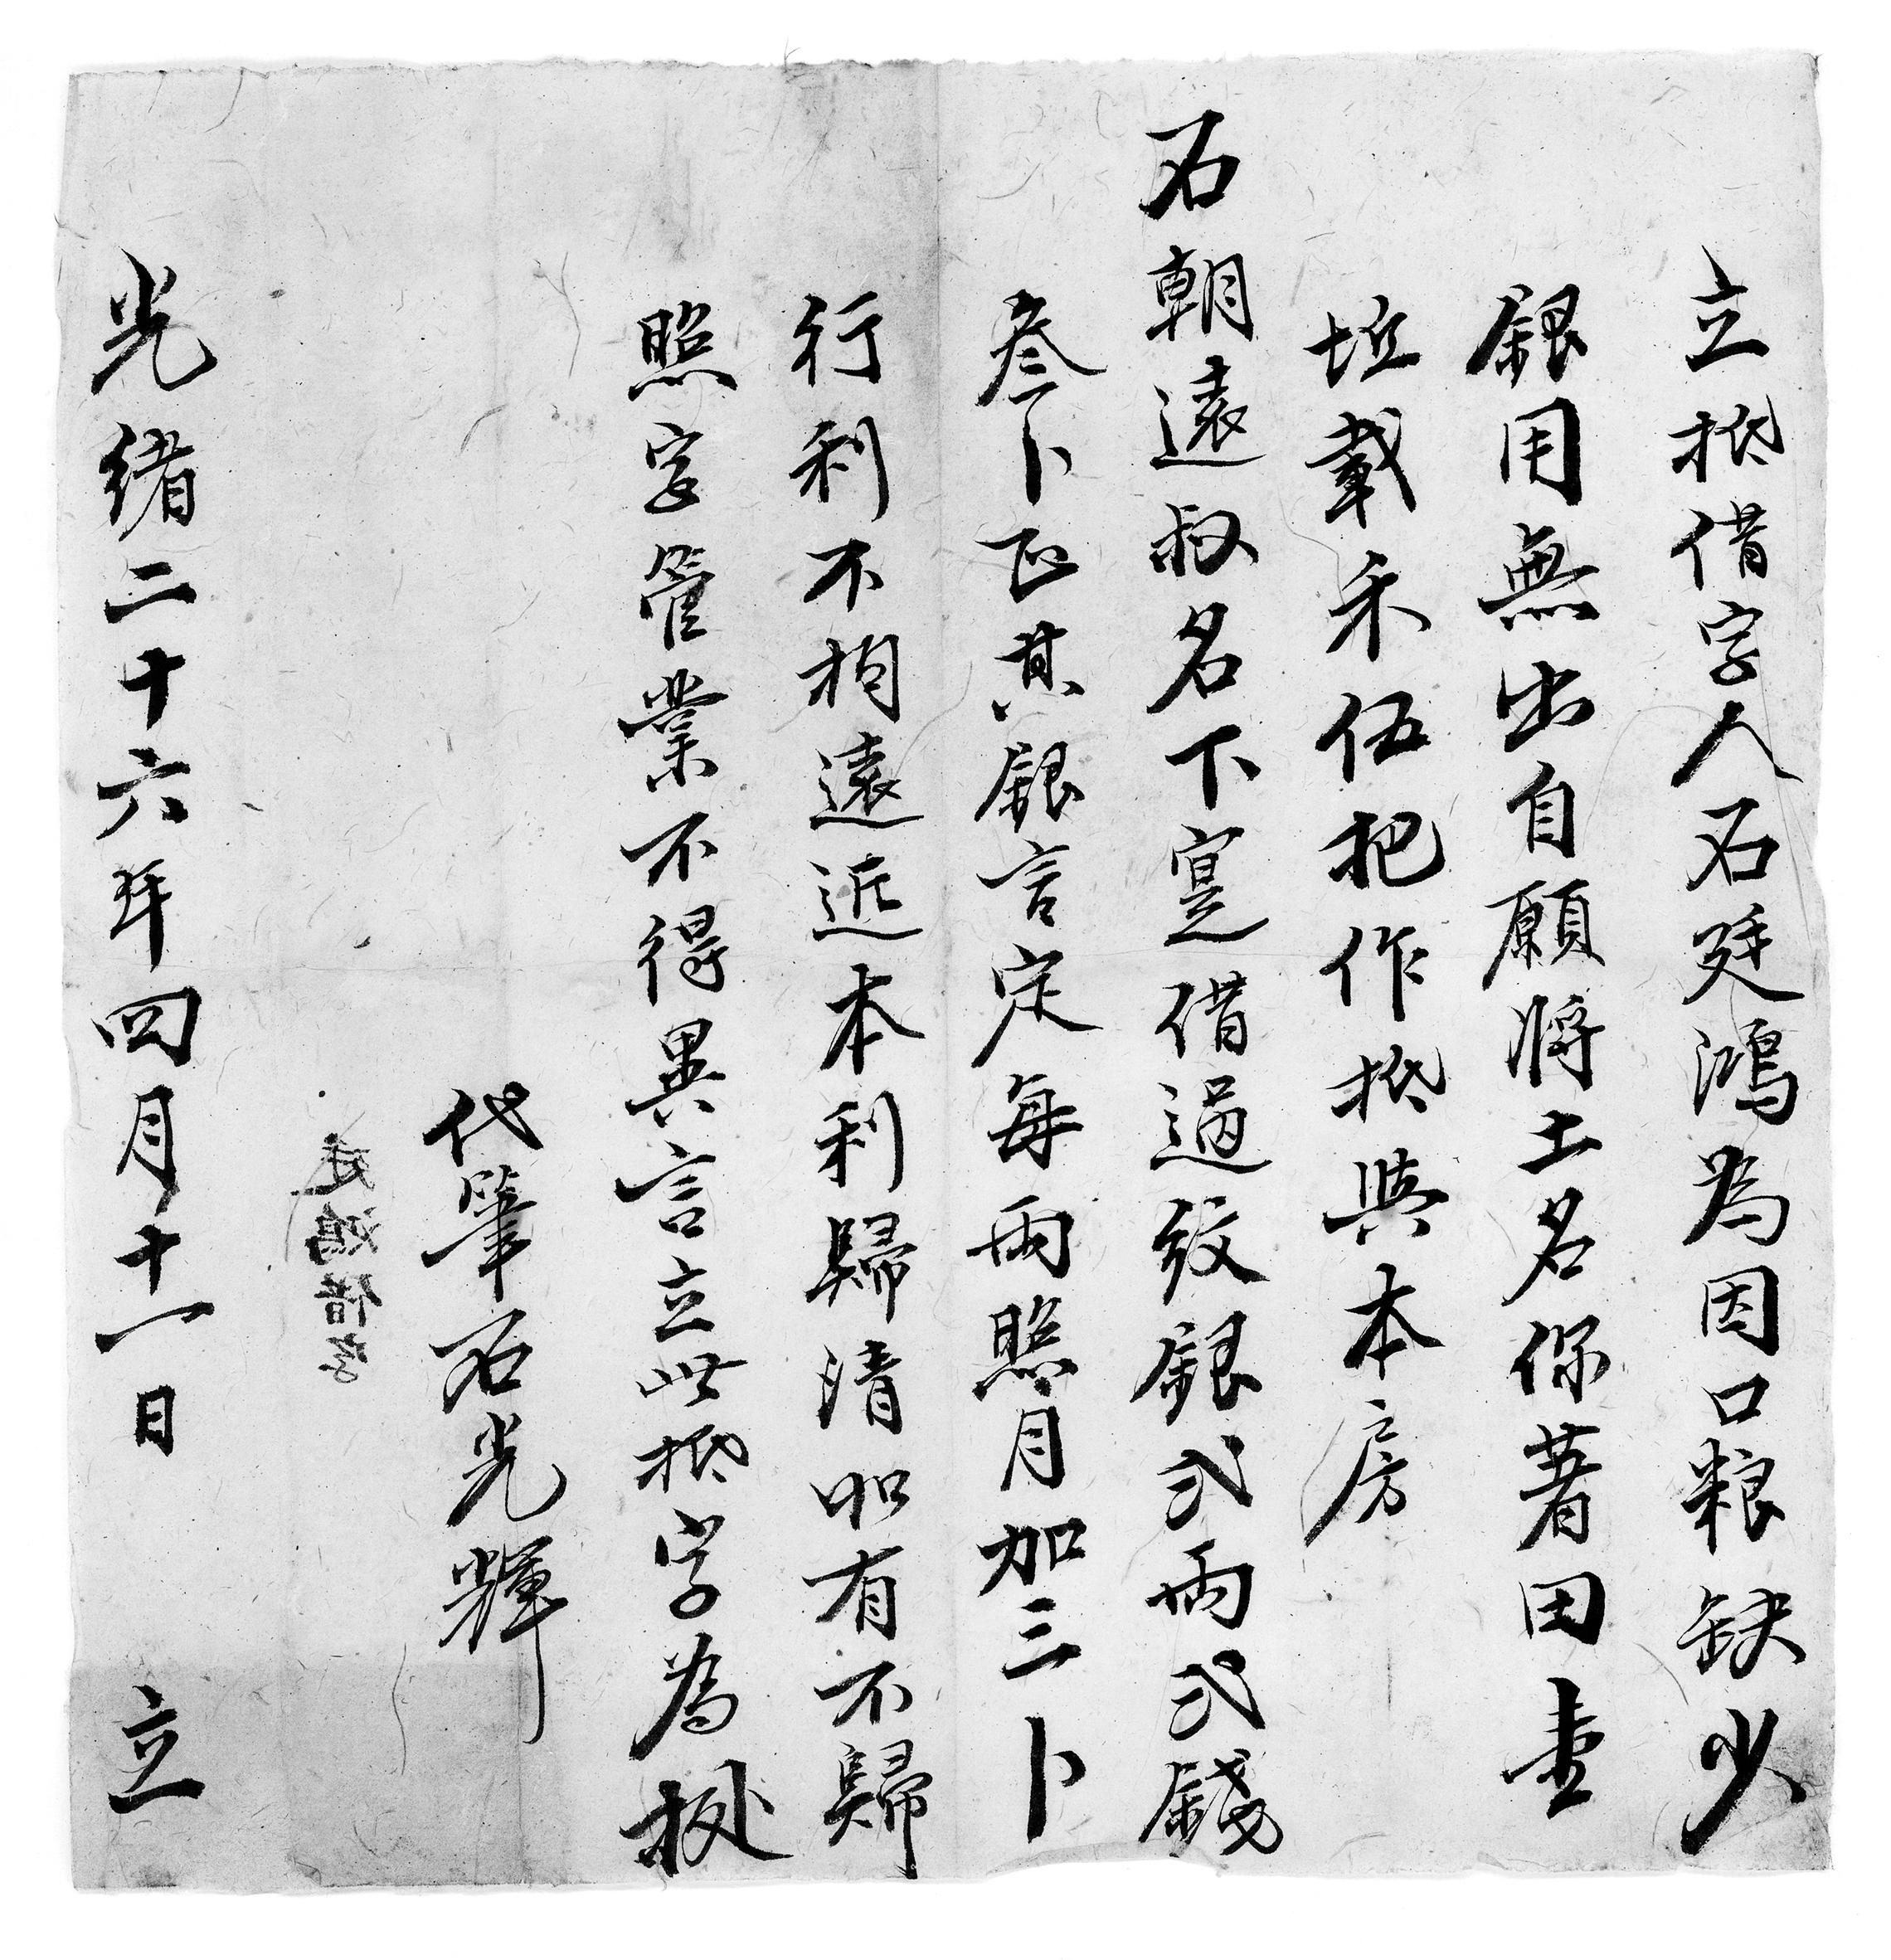 立抵借字人石廷鴻為因口粮缺少
銀用無出自願將土名你著田壹
坵載禾伍把作抵與本房
石朝遠叔名下寔借過紋銀弍兩弍錢
叁卜正其銀言定每兩照月加三卜
行利不拘遠近本利歸清如有不歸
照字管業不得異言立此抵字為
代筆石光輝
廷鴻借字
光緒二十六年四月十一日 立